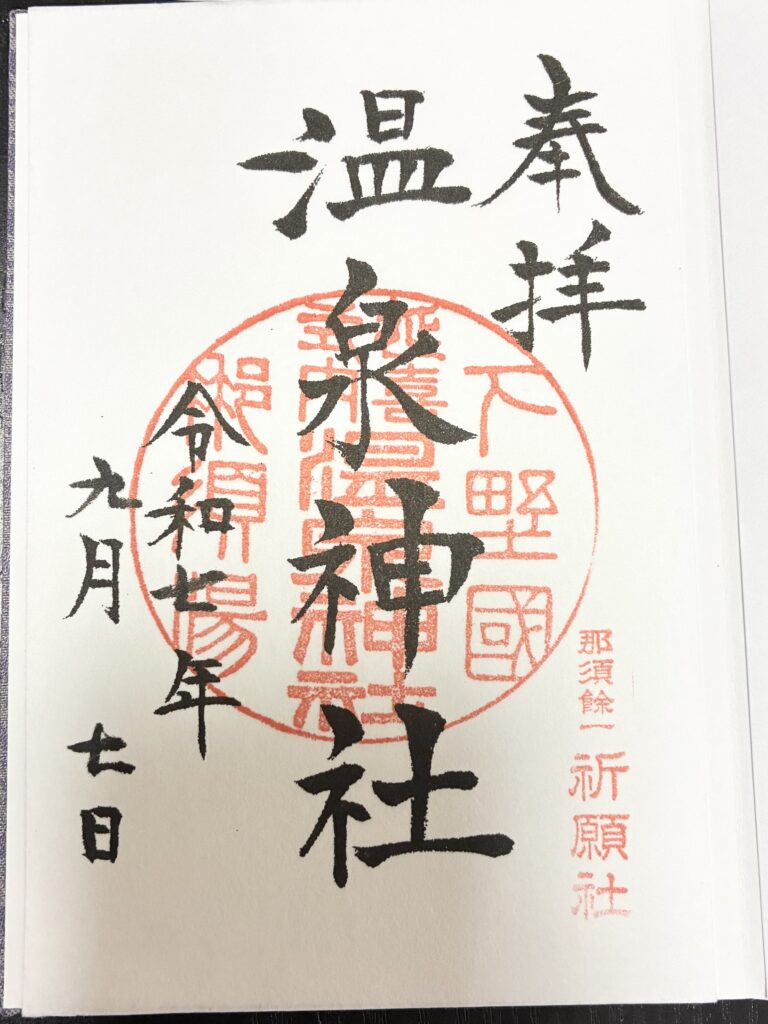 奉拝
下野國
那須餘一
祈願社
温泉神社
延喜
式内
温泉神社
那須湯
令和七年
九月七日